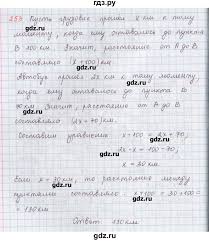 Пусть грузовик прошел x км к тому
моменту, когда ему оставалось до пункта
В 100 км. Значит, расстояние от А до В
составляло (x+100) км.
Автобус прошел 2x км к тому моменту,
когда ему оставалось до пункта В
70 км. Значит, расстояние от А до В
составляло (2x+70) км.
Составим уравнение: x+100 = 2x+70,
2x-x = 100-70,
x = 30 км
Если x = 30 км, то расстояние между
пунктами составляло x+100 = 30+100 =
= 130 км
Ответ: 130 км.
gdz.ru
gdz.ru
gdz.ru
gdz.ru